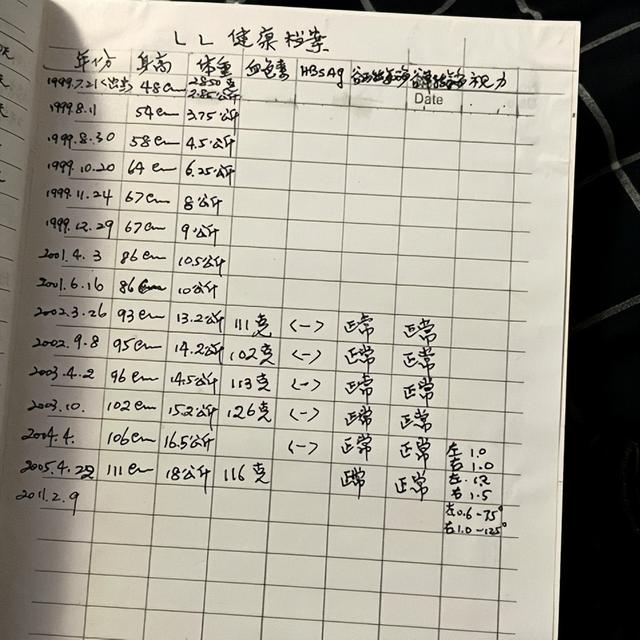 LL 健康档案
年份 身高 体重 血色素 HBsAg 谷丙转氨酶 谷草转氨酶 视力
Date
1999.7.21(出生) 48cm 2850克
2.85公斤
1999.8.11 54cm 3.75公斤
1999.8.30 58cm 4.5公斤
1999.10.20 64cm 6.25公斤
1999.11.24 67cm 8公斤
1999.12.29 67cm 9公斤
2001.4.3 86cm 10.5公斤
2001.6.16 86cm 10公斤
2002.3.26 93cm 13.2公斤 111克 (-) 正常 正常
2002.9.8 95cm 14.2公斤 102克 (-) 正常 正常
2003.4.2 96cm 14.5公斤 113克 (-) 正常 正常
2003.10. 102cm 15.2公斤 126克 (-) 正常 正常
2004.4. 106cm 16.5公斤 (-) 正常 正常 左 1.0
右 1.0
2005.4.22 111cm 18公斤 116克 正常 正常 左 1.2
右 1.5
2011.2.9 左0.6-75°
右1.0-125°